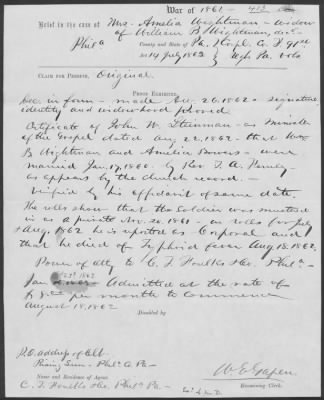 War of 1861
Brief in the case of Mrs. Amelia Wightman - widow
of William B. Wightman, dec'd
Phila County and State of Pa. Corpl. Co. F 91st
14 July 1863 Regt Pa. Vols
CLAIM FOR PENSION, Original.
PROOF EXHIBITED.
Dec. in form - made Aug. 26. 1862 - signature
identity and widowhood proved
Certificate of John W. - as Minister
of the Gospel dated Aug 22, 1862 - that Wm
B. Wightman and Amelia - were
married Jan. 17, 1860. by Rev. T. A.
as appears by the church record. -
Verified by his affidavit of same date
The rolls show that the Soldier was mustered
in as a private Nov. 26. 1861 - on rolls for July
& Aug. 1862 he is reported as Corporal and
that he died of Typhoid fever Aug 18. 1862.
Power of atty to C. T. Foulks &Co. Phila -
Jan 1863 Admitted at the rate of
$8 per month to commence
August 18, 1862
Disabled by
P.O. address of clt
Rising Sun - Phila Co. Pa -
Name and Residence of Agent.
C. T. Foulks &Co. Phila Pa -
W. E. Gapen
Examining Clerk.